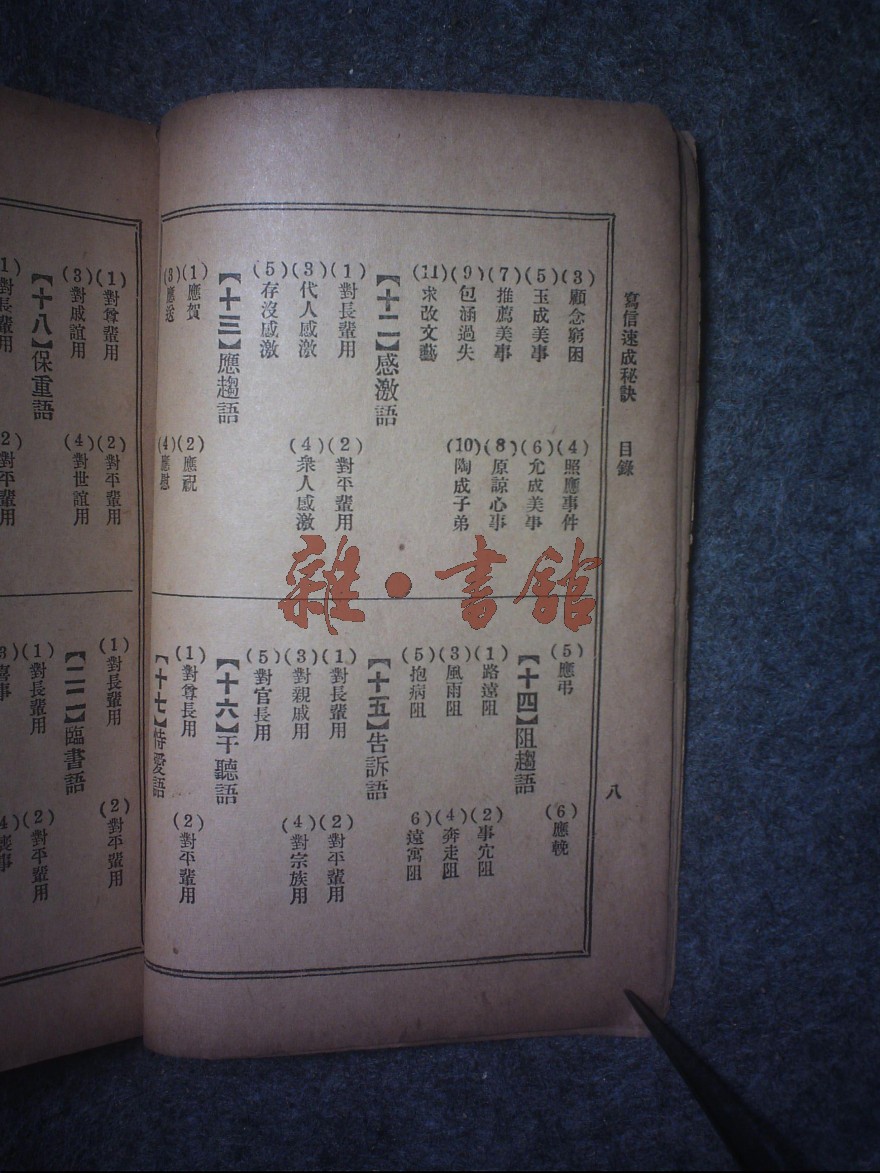 寫信速成秘訣　目錄
八
(3)顧念窮困　(4)照應事件
(5)玉成美事　(6)允成美事
(7)推薦美事　(8)原諒心事
(9)包涵過失　(10)陶成子弟
(11)求改文藝
【十二】感激語
(1)對長輩用　(2)對平輩用
(3)代人感激　(4)衆人感激
(5)存沒感激
【十三】應趨語
(1)應賀　(2)應祝
(3)應送　(4)應慰
(5)應弔　(6)應輓
【十四】阻趨語
(1)路遠阻　(2)事宂阻
(3)風雨阻　(4)奔走阻
(5)抱病阻　6)遠寓阻
【十五】告訴語
(1)對長輩用　(2)對平輩用
(3)對親戚用　(4)對宗族用
(5)對官長用
【十六】干聽語
(1)對尊長用　(2)對平輩用
【十七】恃愛語
(1)對尊輩用　(2)對平輩用
(3)對戚誼用　(4)對世誼用
【十八】保重語
1)對長輩用　2)對平輩用
(1)對長輩用　(2)對平輩用
【二二】臨書語
(1)對長輩用　(2)對平輩用
3)喜事　4)喪事
雜·書館